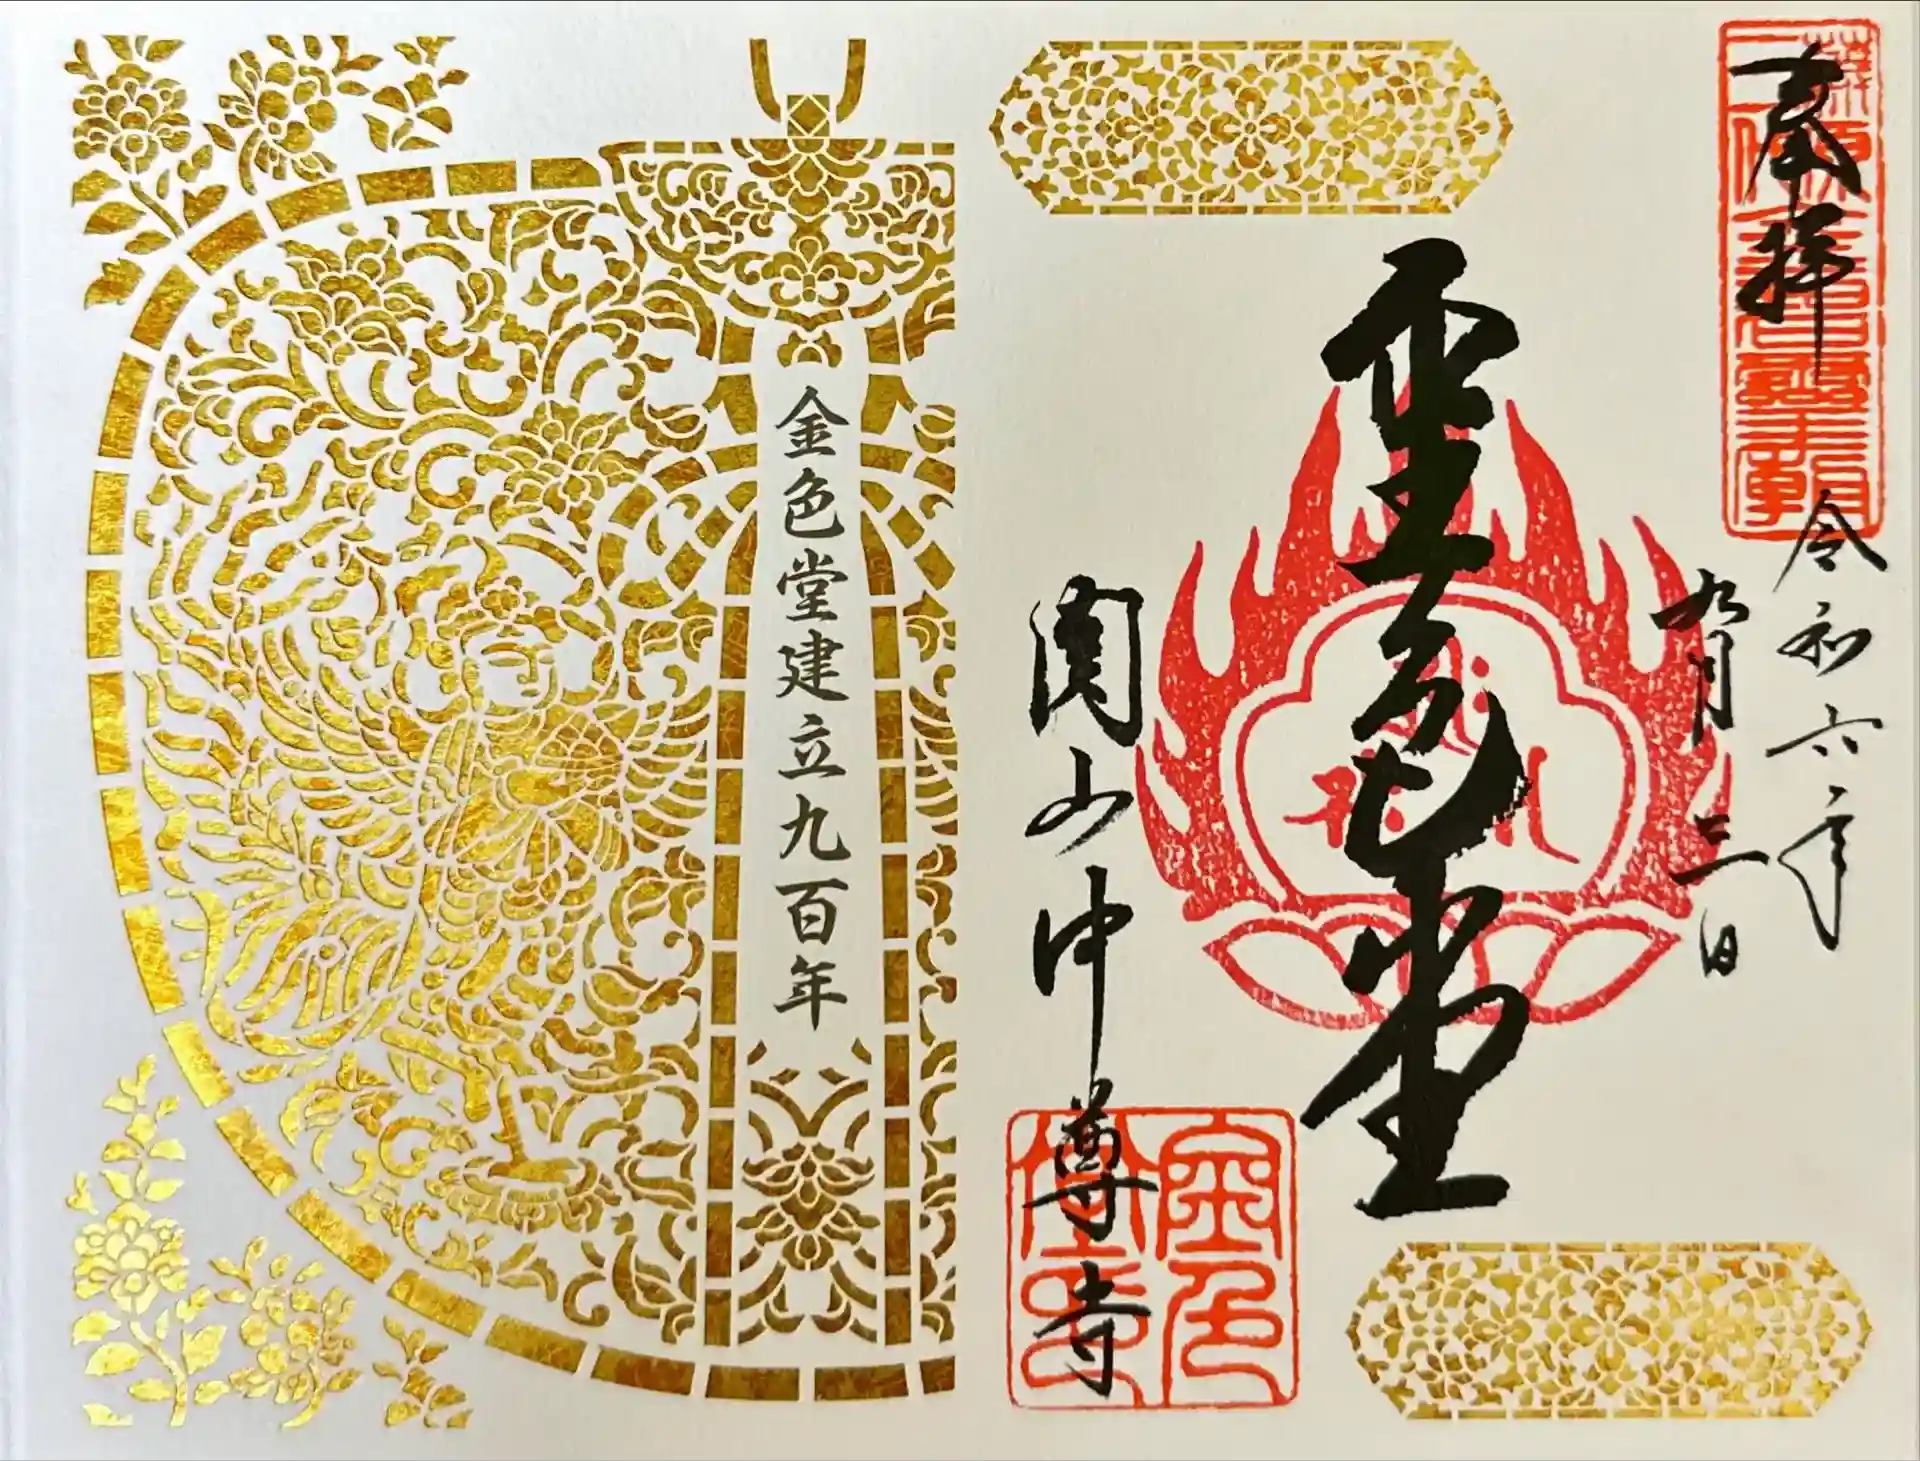 奉拝
令和六年
九月三日
金色堂
関山中尊寺
金色
堂印
金色堂建立九百年